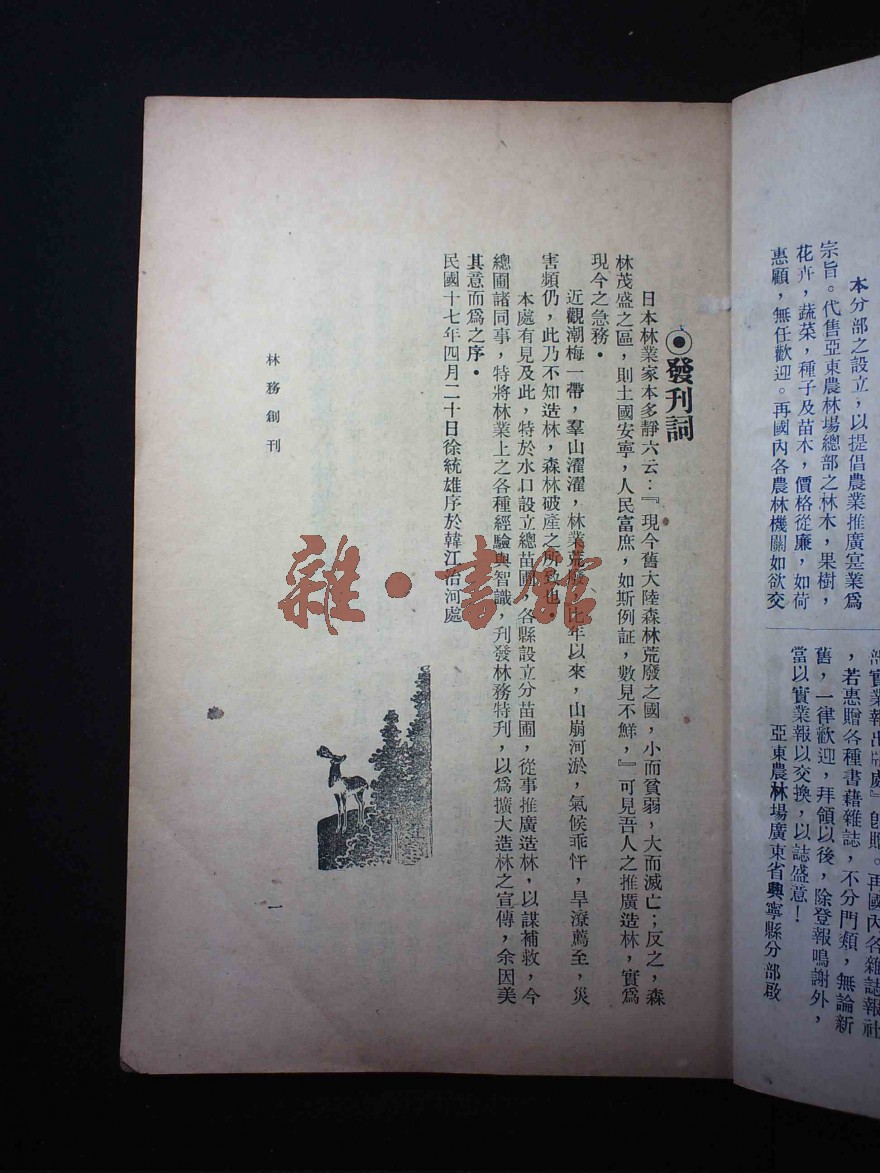 本分部之設立，以提倡農業推廣寔業爲
宗旨。代售亞東農林場總部之林木，果樹，
花卉，蔬菜，種子及苗木，價格從廉，如荷
惠顧，無任歡迎。再國內各農林機關如欲交
實業報出版處』卽贈。再國內各雜誌報社
，若惠贈各種書藉雜誌，不分門類，無論新
舊，一律歡迎，拜領以後，除登報鳴謝外，
當以實業報以交換，以誌盛意！
亞東農林場廣東省興寧縣分部啟
發刊詞
日本林業家本多靜六云：『現今舊大陸森林荒廢之國，小而貧弱，大而滅亡；反之，森
林茂盛之區，則土國安寧，人民富庶，如斯例証，數見不鮮，』可見吾人之推廣造林，實爲
現今之急務．
近觀潮梅一帶，羣山濯濯，林業荒廢，比年以來，山崩河淤，氣候乖忤，旱潦薦至，災
害頻仍，此乃不知造林，森林破產之所致也．
本處有見及此，特於水口設立總苗圃，各縣設立分苗圃，從事推廣造林，以謀補救，今
總圃諸同事，特將林業上之各種經驗與智識，刊發林務特刊，以爲擴大造林之宣傳，余因美
其意而爲之序．
民國十七年四月二十日徐統雄序於韓江治河處
林務創刊
一
雜·書館